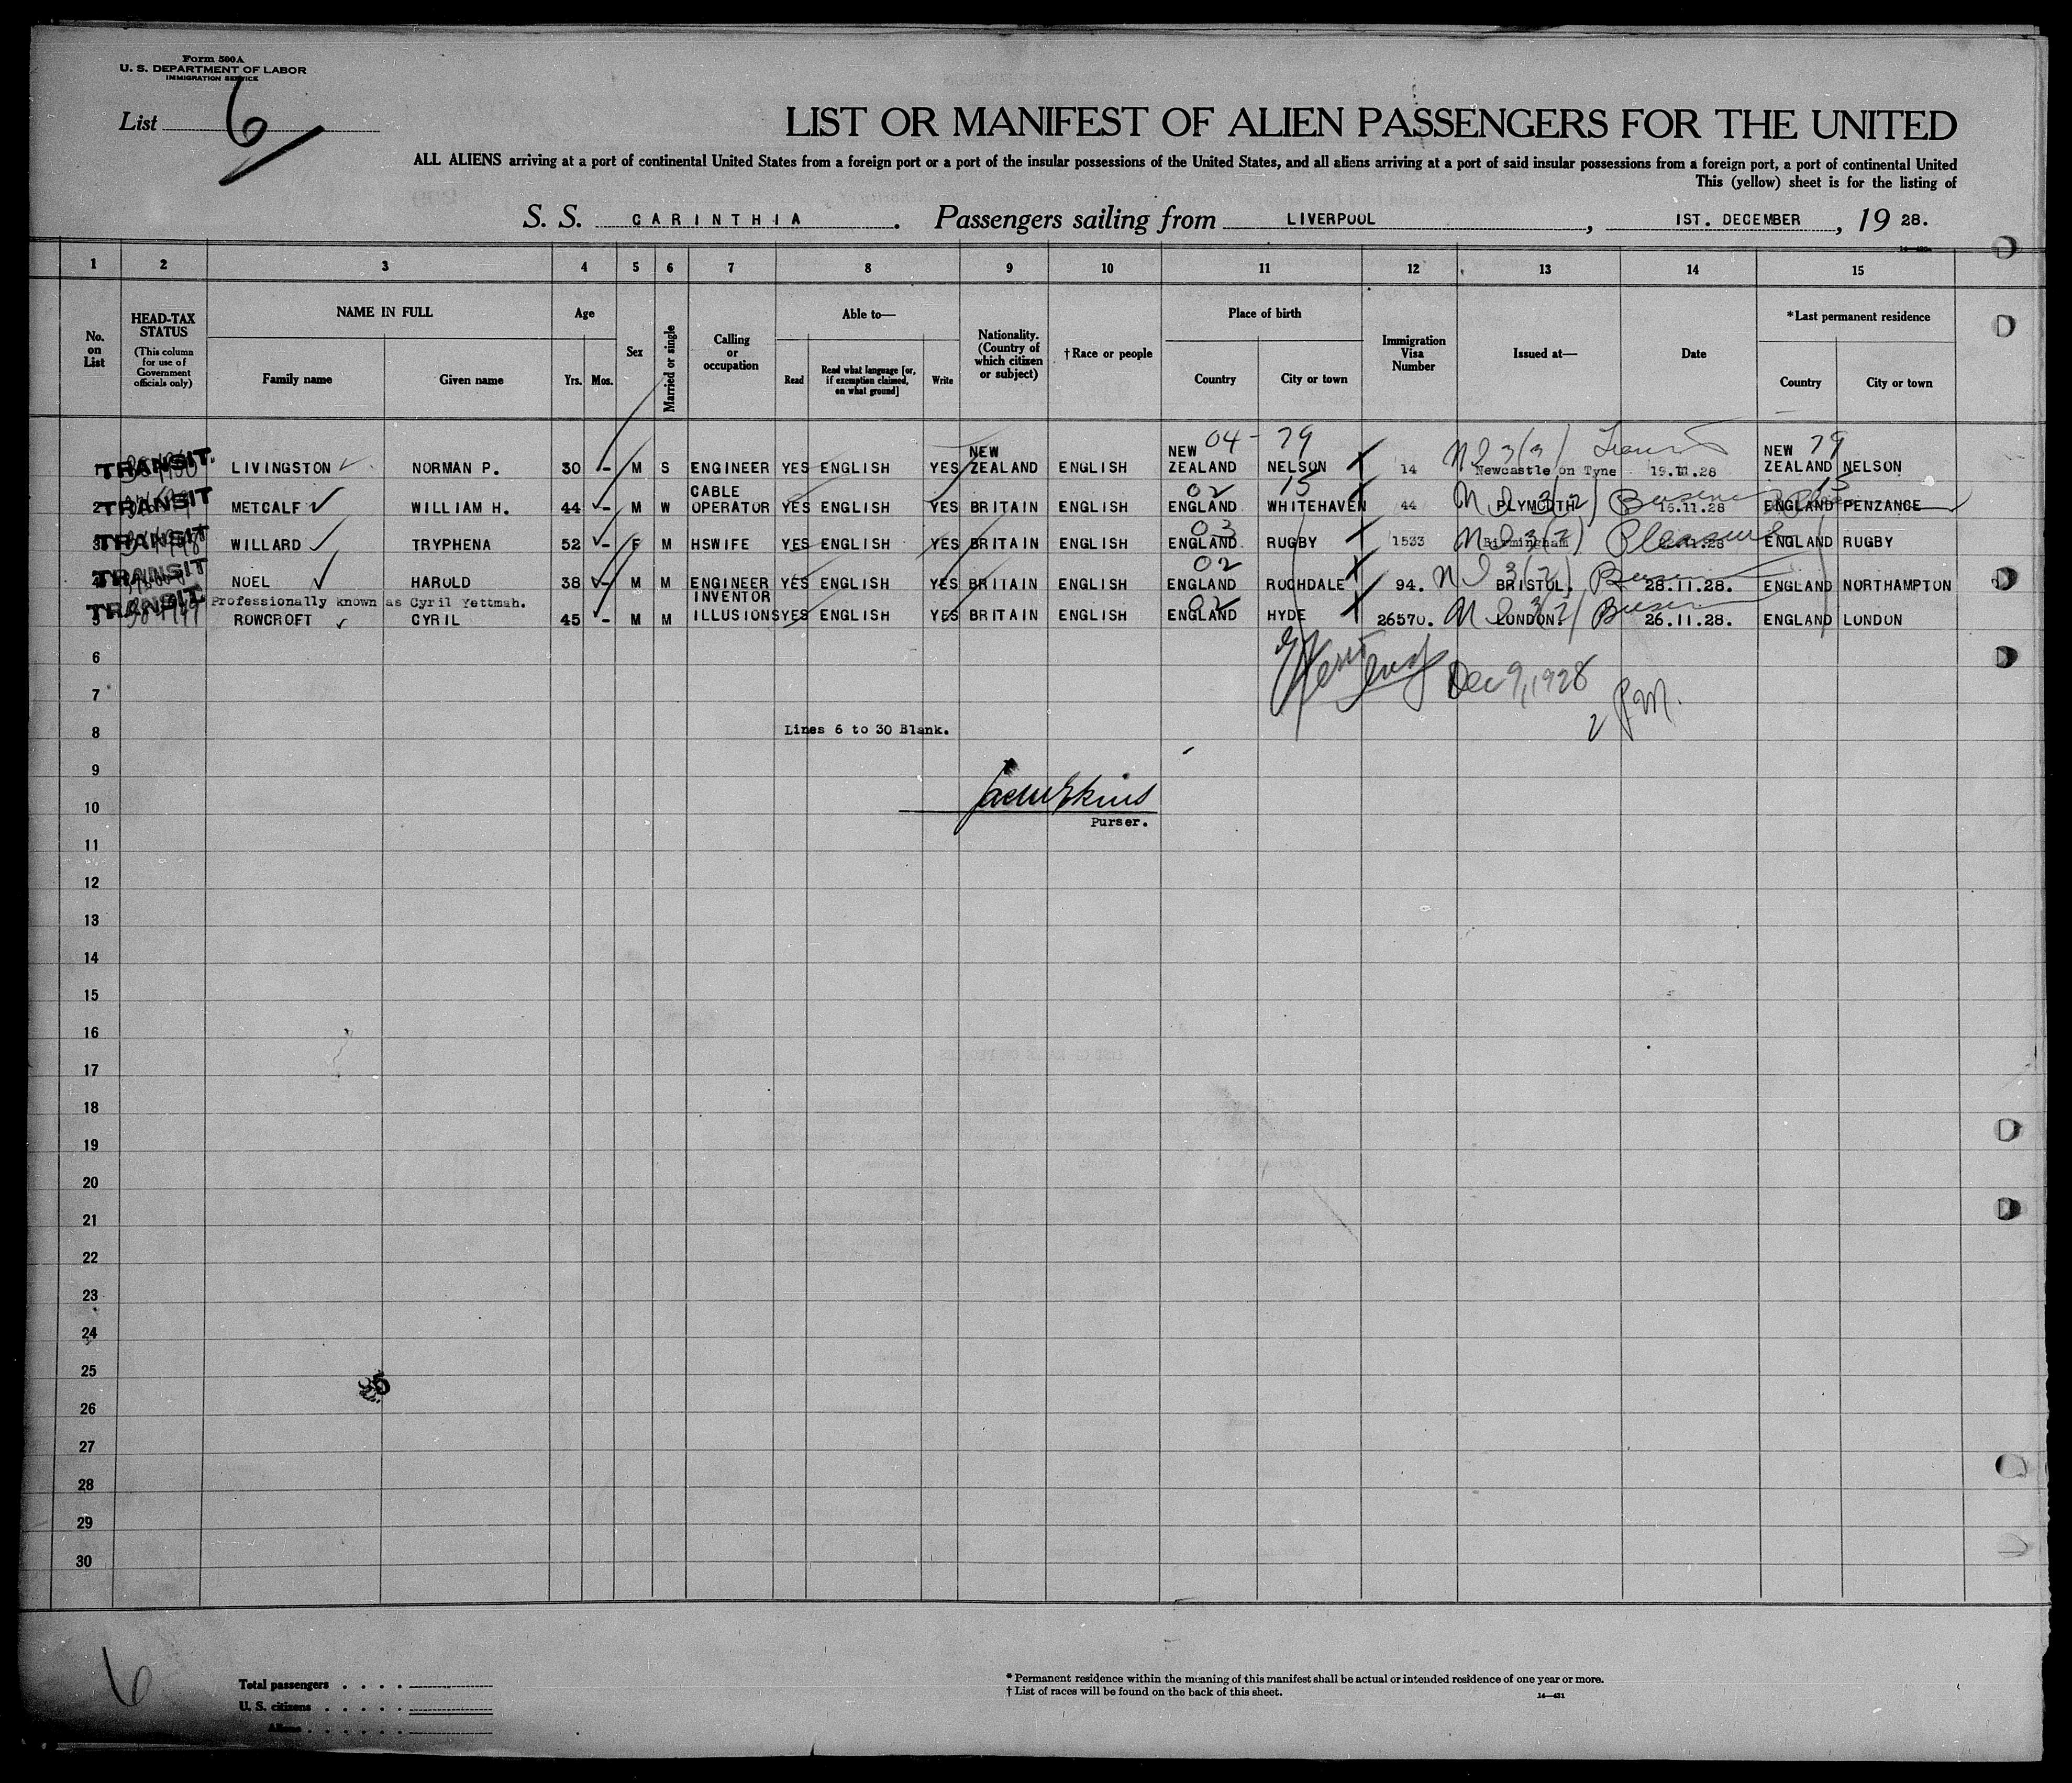 Form 500A
U. S. DEPARTMENT OF LABOR
IMMIGRATION SERVICE
List 6
LIST OR MANIFEST OF ALIEN PASSENGERS FOR THE UNITED
ALL ALIENS arriving at a port of continental United States from a foreign port or a port of the insular possessions of the United States, and all aliens arriving at a port of said insular possessions from a foreign port, a port of continental United
This (yellow) sheet is for the listing of
S. S. CARINTHIA. Passengers sailing from LIVERPOOL, 1ST. DECEMBER, 19 28.
1 2 3 4 5 6 7 8 9 10 11 12 13 14 15
No. on List
HEAD-TAX STATUS (This column for use of Government officials only)
NAME IN FULL
Family name Given name
Age
Yrs. Mos.
Sex
Married or single
Calling or occupation
Able to—
Read
Read what language [or, if exemption claimed, on what ground]
Write
Nationality. (Country of which citizen or subject)
†Race or people
Place of birth
Country City or town
Immigration Visa Number
Issued at—
Date
*Last permanent residence
Country City or town
04 - 79 79
TRANSIT LIVINGSTON NORMAN P. 30 - M S ENGINEER YES ENGLISH YES NEW ZEALAND ENGLISH NEW ZEALAND NELSON 14 Newcastle on Tyne 19.11.28 NEW ZEALAND NELSON
02 15 15
2 TRANSIT METCALF WILLIAM H. 44 - M W CABLE OPERATOR YES ENGLISH YES BRITAIN ENGLISH ENGLAND WHITEHAVEN 44 PLYMOUTH 15.11.28 ENGLAND PENZANCE
03
3 TRANSIT WILLARD TRYPHENA 52 - F M HSWIFE YES ENGLISH YES BRITAIN ENGLISH ENGLAND RUGBY 1533 Birmingham Pleasure ENGLAND RUGBY
02
4 TRANSIT NOEL HAROLD 38 - M M ENGINEER YES ENGLISH YES BRITAIN ENGLISH ENGLAND ROCHDALE 94. BRISTOL. 28.11.28. ENGLAND NORTHAMPTON
Professionally known as Cyril Yettmah.
02
5 TRANSIT ROWCROFT CYRIL 45 - M M INVENTOR ILLUSIONS YES ENGLISH YES BRITAIN ENGLISH ENGLAND HYDE 26570. LONDON. 26.11.28. ENGLAND LONDON
6
Dec 9, 1928
7
2 P.M.
8 Lines 6 to 30 Blank.
9
10
Purser.
11
12
13
14
15
16
17
18
19
20
21
22
23
24
25
26
27
28
29
30
6
Total passengers
U. S. citizens
Aliens
* Permanent residence within the meaning of this manifest shall be actual or intended residence of one year or more.
† List of races will be found on the back of this sheet.
14—431